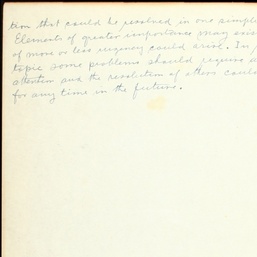 tion that could be resolved in one simple
Elements of greater importance may exis
of more or less urgency could arise. In
topic some problems should require a
attention and the resolution of others could
for any time in the future.